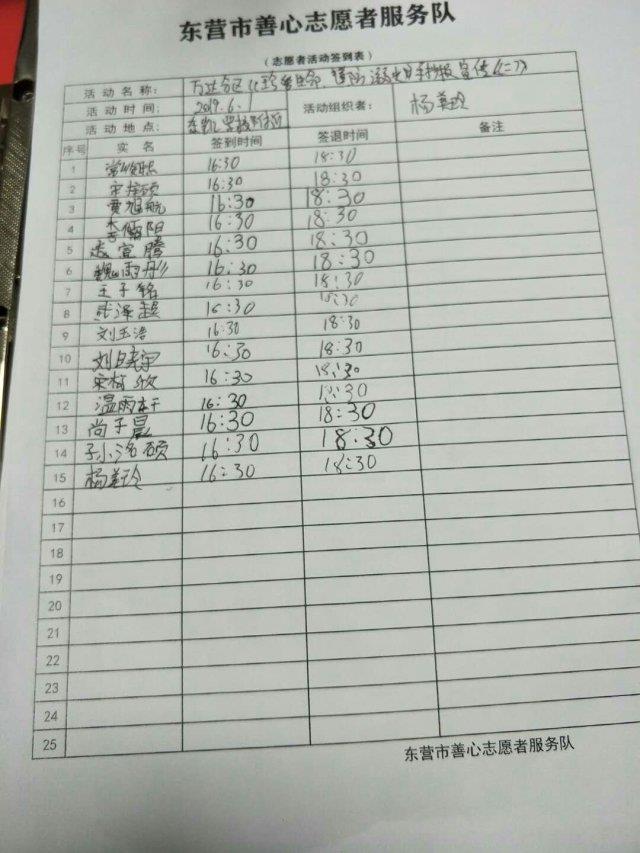 东营市善心志愿者服务队
(志愿者活动签到表)
活动名称: 万达分区《珍爱生命,谨防溺水》手抄报宣传(二)
活动时间: 2019.6.1 活动组织者: 杨美玲
活动地点: 学校
序号 实名 签到时间 签退时间 备注
1 16:30 18:30
2 16:30 18:30
3 黄旭航 16:30 18:30
4 李衡阳 16:30 18:30
5 宣腾 16:30 18:30
6 魏雨彤 16:30 18:30
7 王子铭 16:30 18:30
8 武泽超 16:30 18:30
9 刘玉浩 16:30 18:30
10 刘 宇 16:30 18:30
11 宋 欣 16:30 18:30
12 温雨 16:30 18:30
13 尚子晨 16:30 18:30
14 孙洺硕 16:30 18:30
15 杨美玲 16:30 18:30
16
17
18
19
20
21
22
23
24
25
东营市善心志愿者服务队